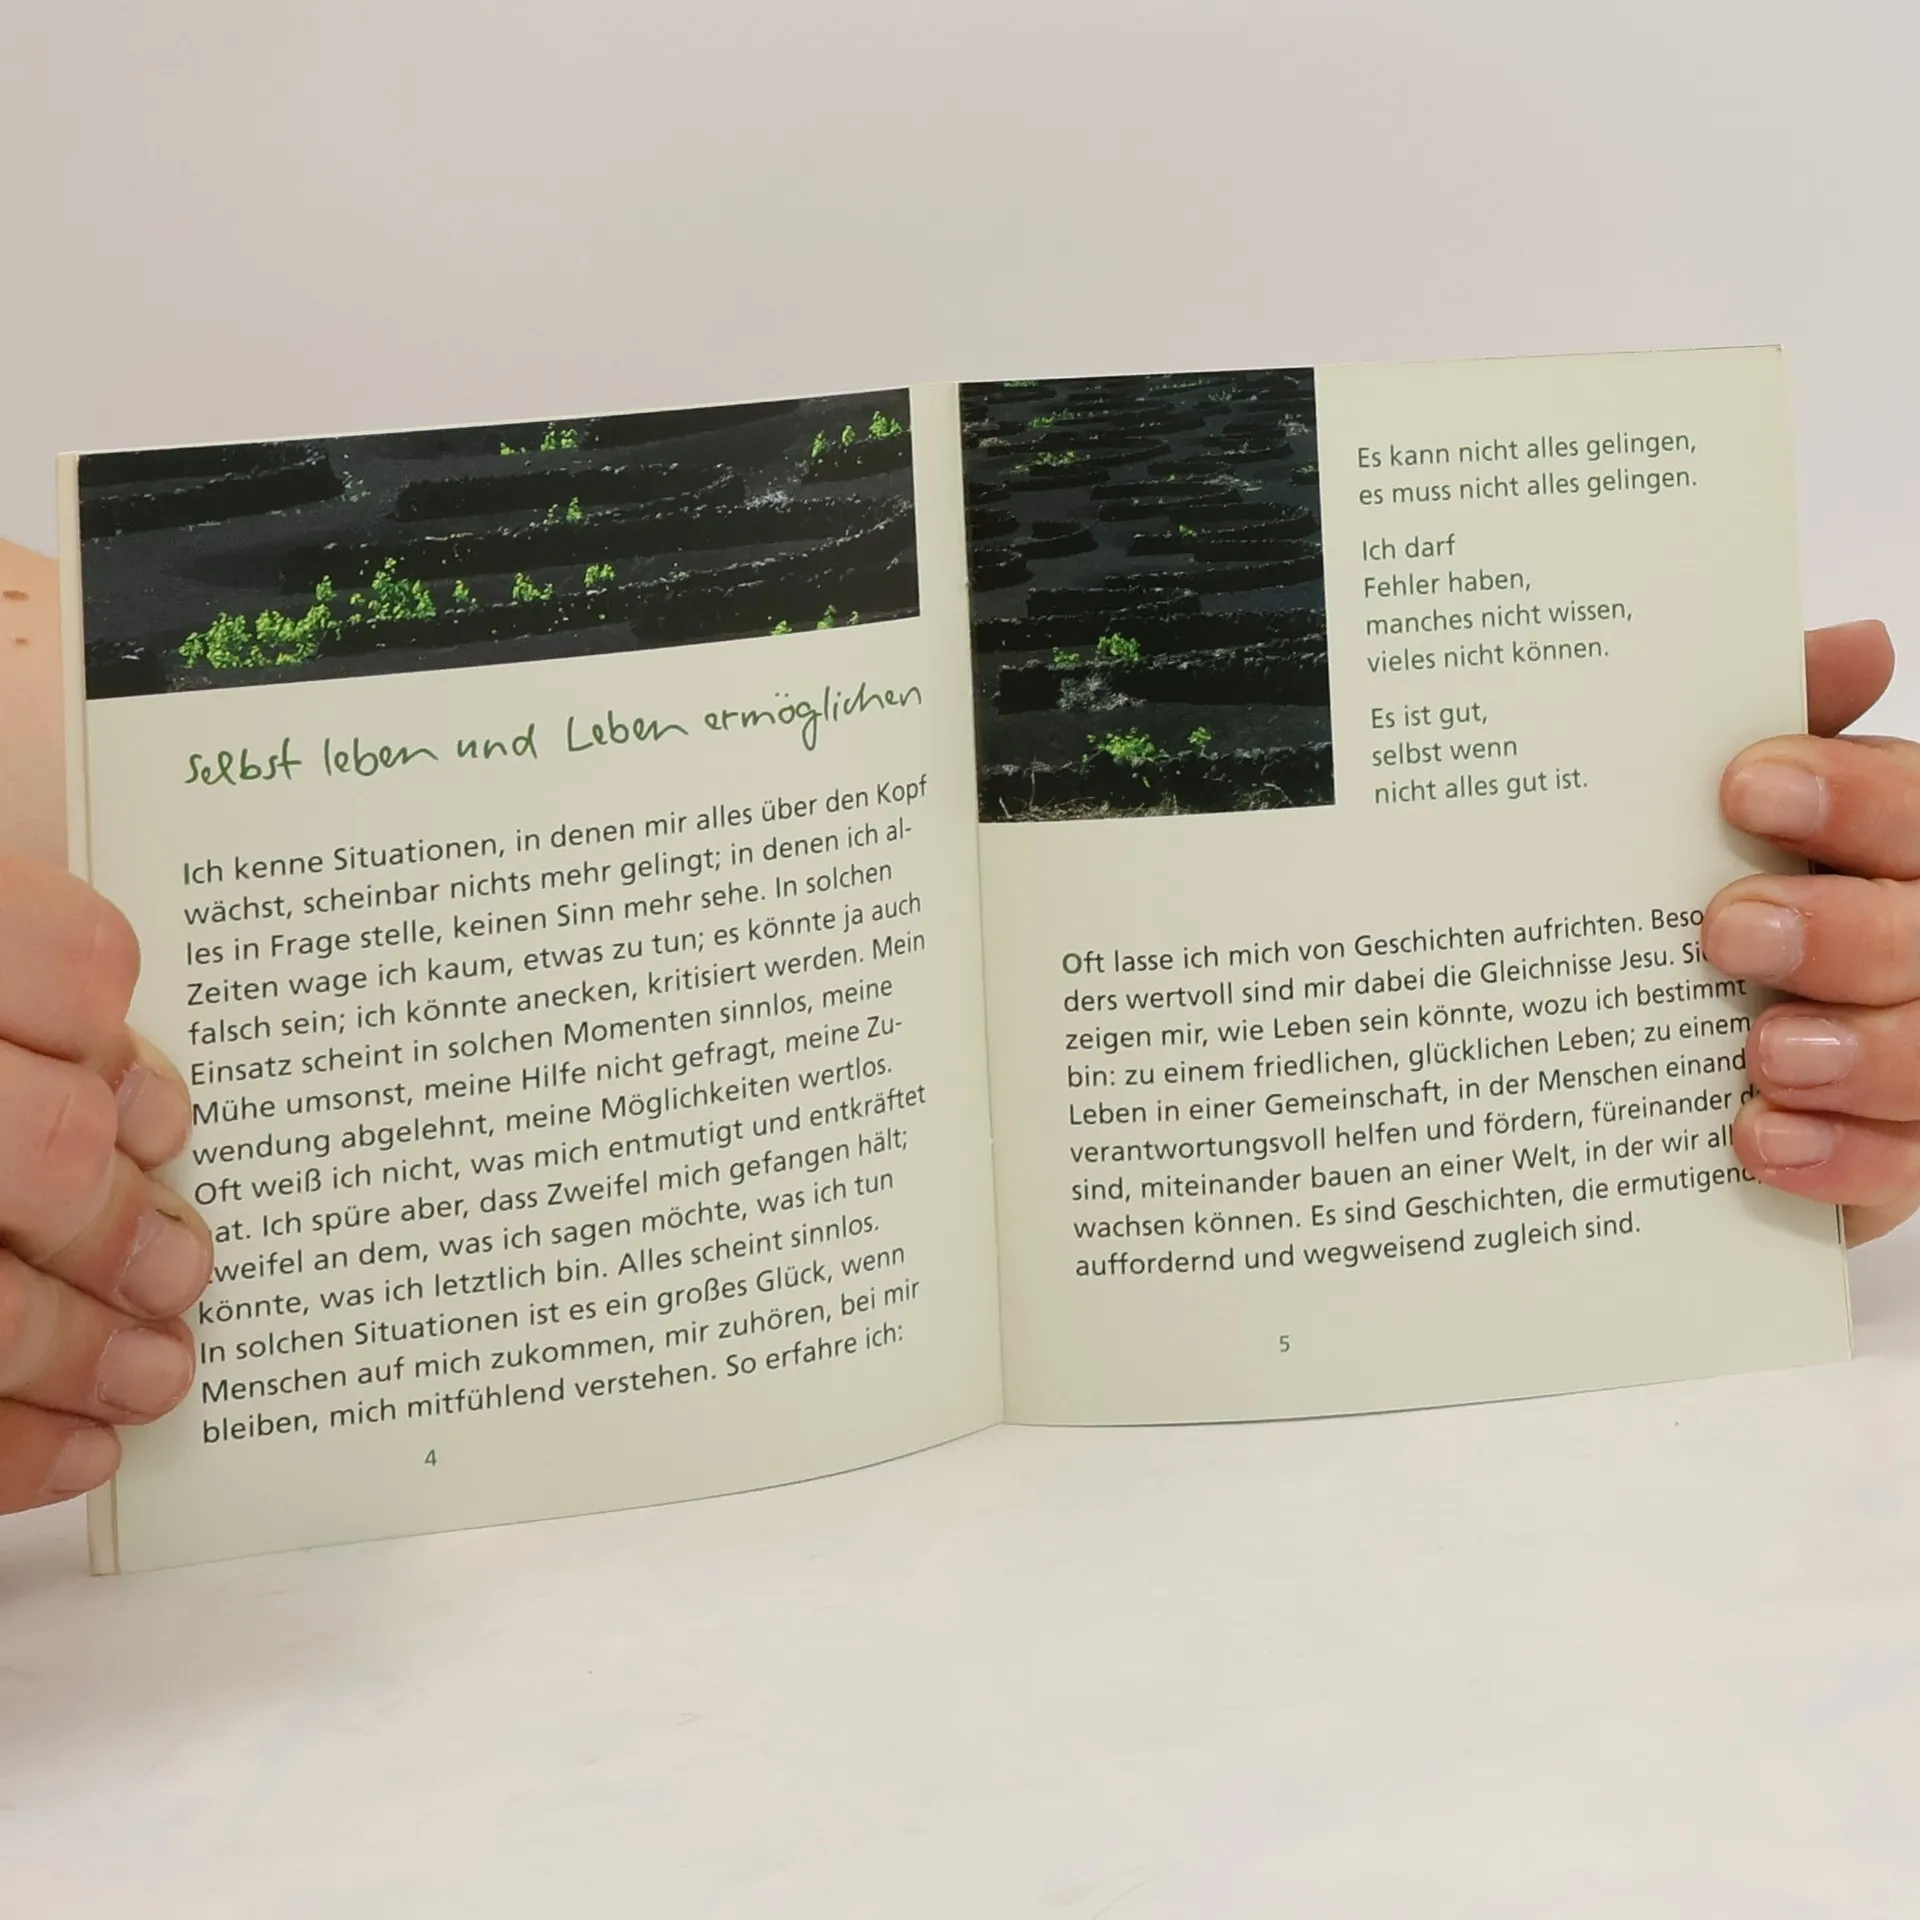 Selbst leben und Leben ermöglichen
Ich kenne Situationen, in denen mir alles über den Kopf
wächst, scheinbar nichts mehr gelingt; in denen ich al-
les in Frage stelle, keinen Sinn mehr sehe. In solchen
Zeiten wage ich kaum, etwas zu tun; es könnte ja auch
falsch sein; ich könnte anecken, kritisiert werden. Mein
Einsatz scheint in solchen Momenten sinnlos, meine
Mühe umsonst, meine Hilfe nicht gefragt, meine Zu-
wendung abgelehnt, meine Möglichkeiten wertlos.
Oft weiß ich nicht, was mich entmutigt und entkräftet
at. Ich spüre aber, dass Zweifel mich gefangen hält;
weifel an dem, was ich sagen möchte, was ich tun
könnte, was ich letztlich bin. Alles scheint sinnlos.
In solchen Situationen ist es ein großes Glück, wenn
Menschen auf mich zukommen, mir zuhören, bei mir
bleiben, mich mitfühlend verstehen. So erfahre ich:
4
Es kann nicht alles gelingen,
es muss nicht alles gelingen.
Ich darf
Fehler haben,
manches nicht wissen,
vieles nicht können.
Es ist gut,
selbst wenn
nicht alles gut ist.
Oft lasse ich mich von Geschichten aufrichten. Beso
ders wertvoll sind mir dabei die Gleichnisse Jesu. Si
zeigen mir, wie Leben sein könnte, wozu ich bestimmt
bin: zu einem friedlichen, glücklichen Leben; zu einem
Leben in einer Gemeinschaft, in der Menschen einand
verantwortungsvoll helfen und fördern, füreinander d
sind, miteinander bauen an einer Welt, in der wir all
wachsen können. Es sind Geschichten, die ermutigend,
auffordernd und wegweisend zugleich sind.
5